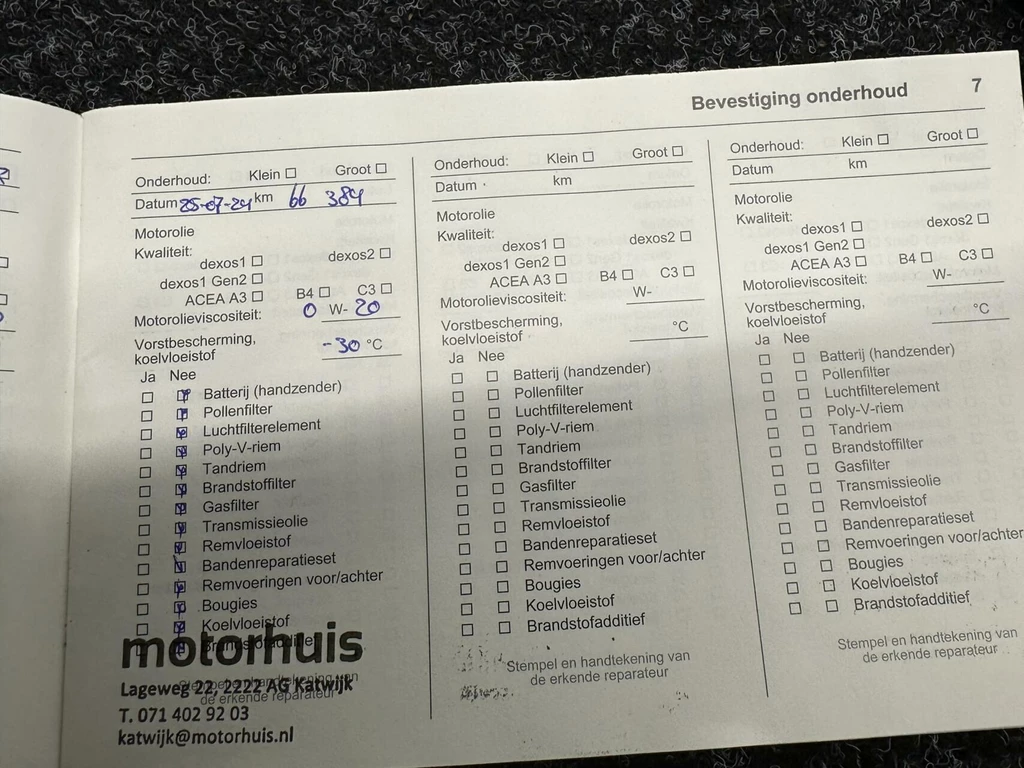 Bevestiging onderhoud 7
Onderhoud: Klein Groot
Datum 25-07-24 km 66 384
Motorolie
Kwaliteit:
dexos1 dexos2
dexos1 Gen2
ACEA A3 B4 C3
Motorolieviscositeit: 0 W- 20
Vorstbescherming,
koelvloeistof -30 °C
Ja Nee
Batterij (handzender)
Pollenfilter
Luchtfilterelement
Poly-V-riem
Tandriem
Brandstoffilter
Gasfilter
Transmissieolie
Remvloeistof
Bandenreparatieset
Remvoeringen voor/achter
Bougies
Koelvloeistof
Brandstofadditief
motorhuis
Lageweg 22, 2222 AG Katwijk
Stempel en handtekening van
de erkende reparateur
T. 071 402 92 03
katwijk@motorhuis.nl
Onderhoud: Klein Groot
Datum km
Motorolie
Kwaliteit:
dexos1 dexos2
dexos1 Gen2
ACEA A3 B4 C3
Motorolieviscositeit: W-
Vorstbescherming,
koelvloeistof °C
Ja Nee
Batterij (handzender)
Pollenfilter
Luchtfilterelement
Poly-V-riem
Tandriem
Brandstoffilter
Gasfilter
Transmissieolie
Remvloeistof
Bandenreparatieset
Remvoeringen voor/achter
Bougies
Koelvloeistof
Brandstofadditief
Stempel en handtekening van
de erkende reparateur
Onderhoud: Klein Groot
Datum km
Motorolie
Kwaliteit:
dexos1 dexos2
dexos1 Gen2
ACEA A3 B4 C3
Motorolieviscositeit: W-
Vorstbescherming,
koelvloeistof °C
Ja Nee
Batterij (handzender)
Pollenfilter
Luchtfilterelement
Poly-V-riem
Tandriem
Brandstoffilter
Gasfilter
Transmissieolie
Remvloeistof
Bandenreparatieset
Remvoeringen voor/achter
Bougies
Koelvloeistof
Brandstofadditief
Stempel en handtekening van
de erkende reparateur